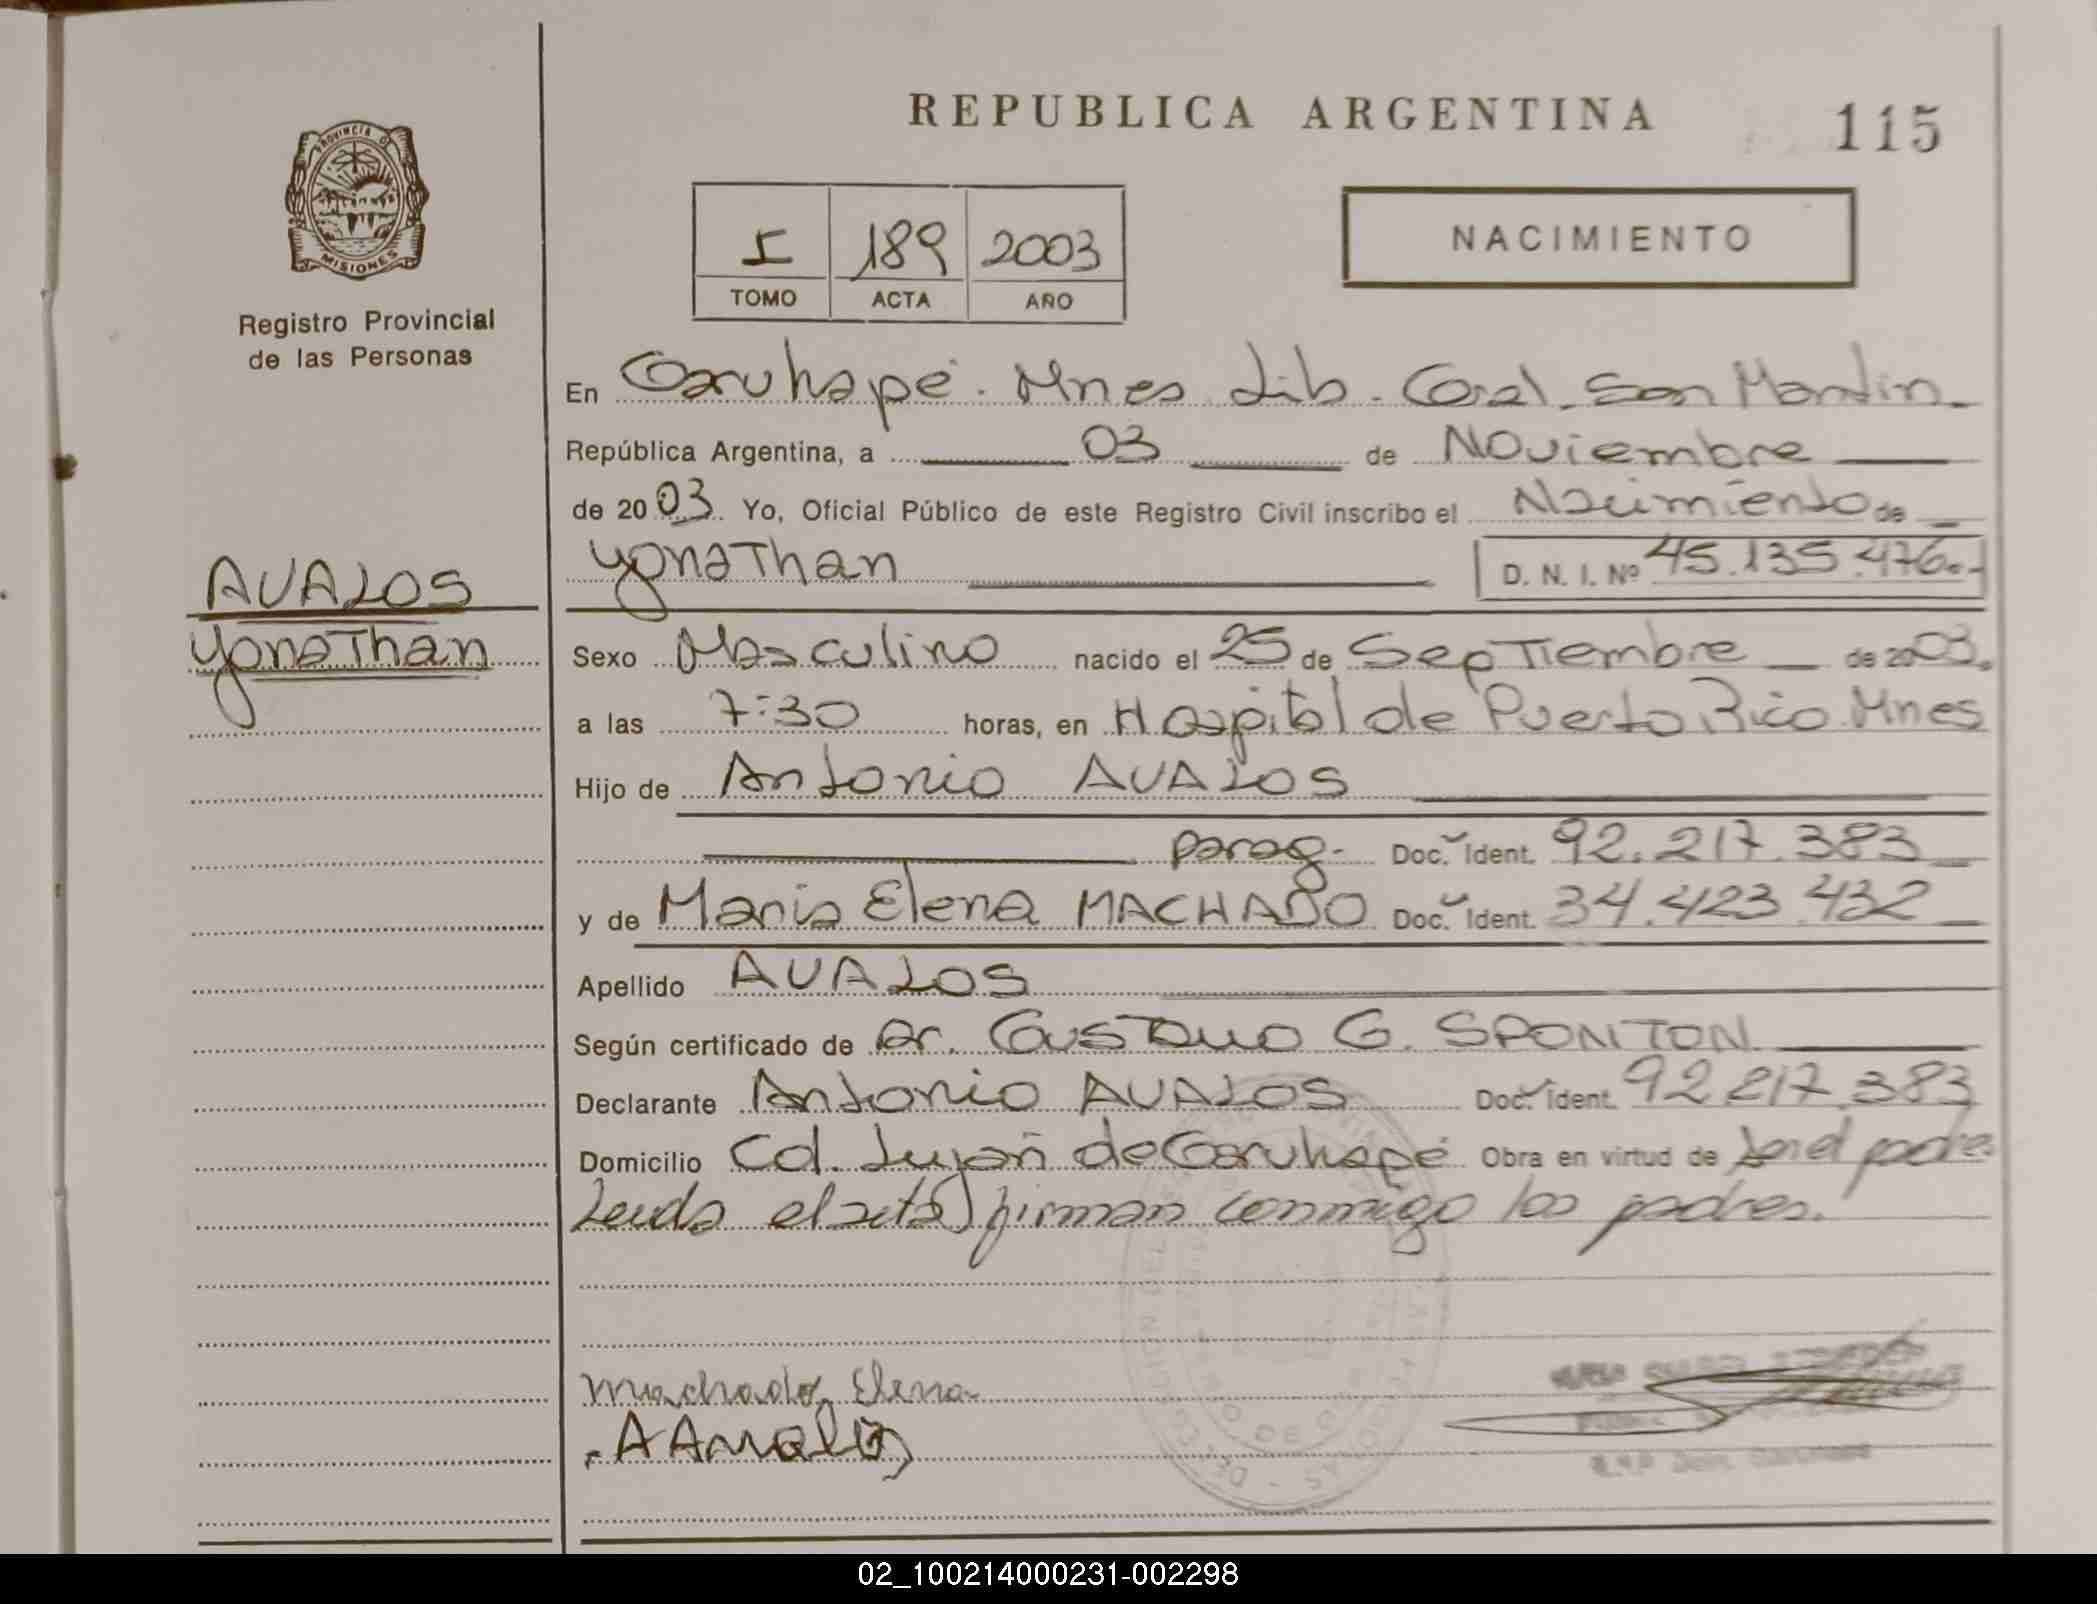 REPUBLICA ARGENTINA
115
PROVINCIA DE
MISIONES
Registro Provincial
de las Personas
I 189 2003
TOMO ACTA AÑO
NACIMIENTO
En Caruhapé - Mnes Lib. Gral. San Martín.
República Argentina, a 03 de Noviembre
de 2003. Yo, Oficial Público de este Registro Civil inscribo el Nacimiento de
yonaThan D. N. I. Nº 45.135.476.-
AVALOS
yonaThan
Sexo Masculino nacido el 25 de SepTiembre de 2003.
a las 7:30 horas, en Hospital de Puerto Rico Mnes
Hijo de Antonio AVALOS
parag. Doc. Ident. 92.217.383
y de Maria Elena MACHADO Doc. Ident. 34.423.432
Apellido AVALOS
Según certificado de Dr. Gustavo G. SPONTON
Declarante Antonio AVALOS Doc. Ident. 92 217.383
Domicilio Cd. Luján de Caruhapé Obra en virtud de ser el padre
Leida el acta, firman conmigo los padres.
Machado, Elena
02_100214000231-002298